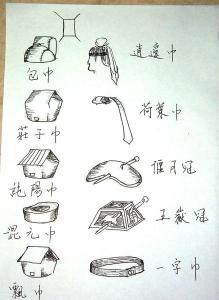 包巾
逍遙巾
莊子巾
荷葉巾
純陽巾
偃月冠
混元巾
五嶽冠
飄巾
一字巾